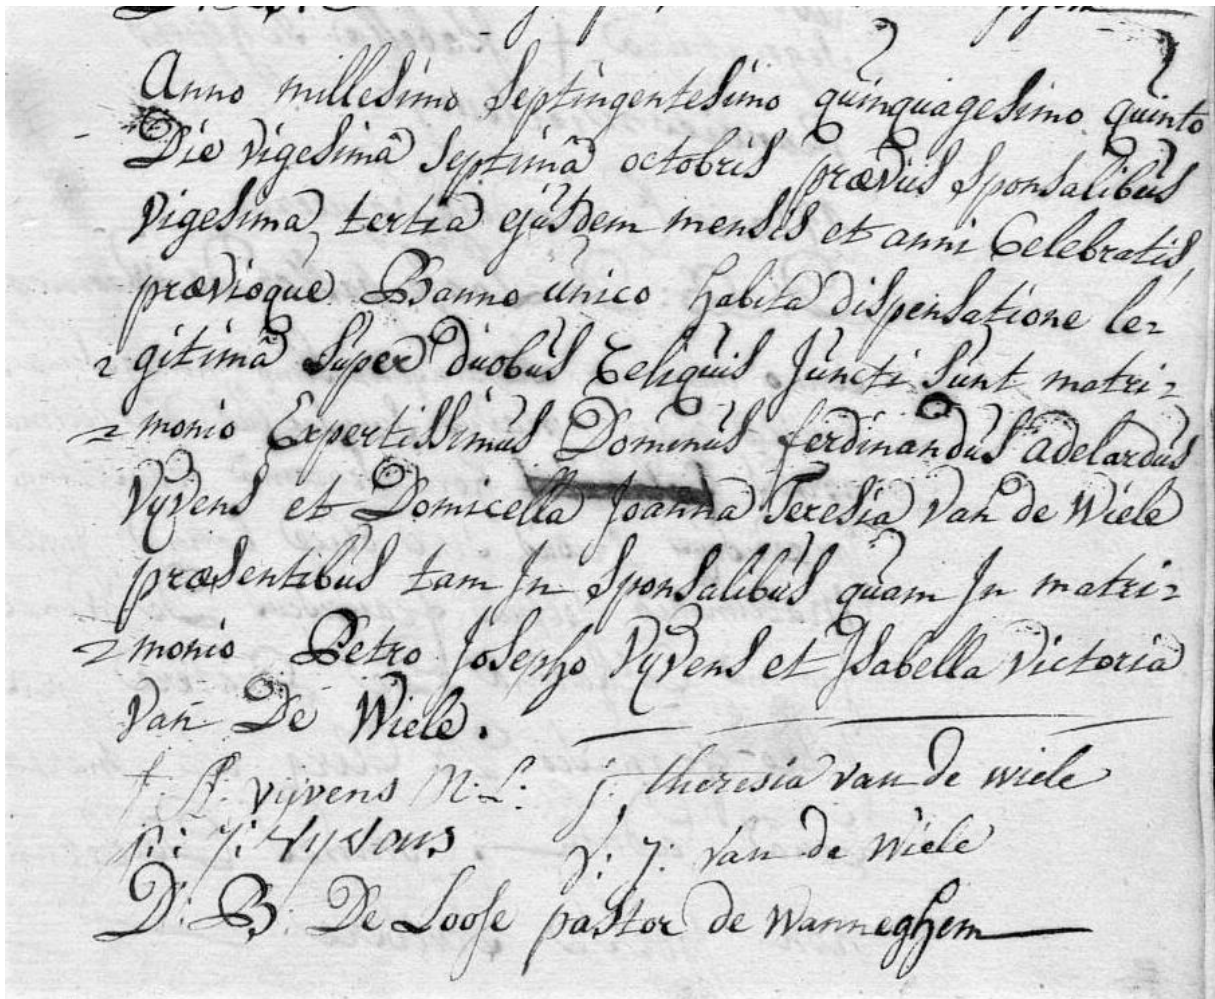 Anno millesimo septingentesimo quinquagesimo quinto
Die vigesimâ septimâ octobris prævius sponsalibus
vigesima tertia ejusdem mensis et anni Celebratis,
prævioque Banno unico habita dispensatione le=
=gitimâ super duobus reliquis juncti sunt matri=
=monio Expertissimus Dominus ferdinandus adelardus
vyvens et Domicella Joanna Teresia van de Wiele
præsentibus tam in sponsalibus quam in matri=
=monio Petro Josepho Vyvens et Isabella victoria
van De Wiele.
f: A: vyvens M: L: j: theresia van de wiele
p: j: vyvens J: V: van de wiele
D: B: De Loose pastor de wanneghem